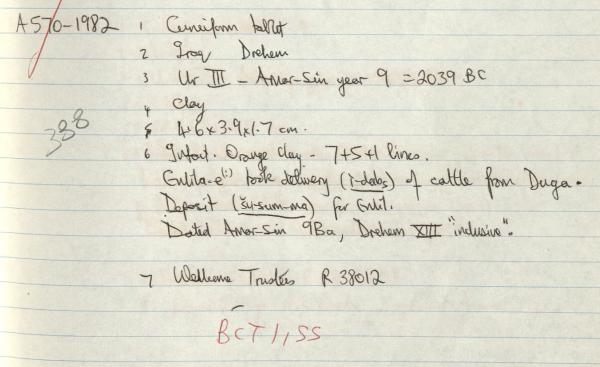 A570-1982 1 Cuneiform tablet
2 Iraq Drehem
3 Ur III - Amar-Sin year 9 = 2039 BC
4 Clay
5 4.6 x 3.9 x 1.7 cm.
6 Intact. Orange clay - 7+5+1 lines.
388
Enlila-e(?) took delivery (ì-dab5) of cattle from Duga.
Deposit (šu-sum-ma) for Enlil.
Dated Amar-Sin 9Ba, Drehem XIII "inclusive".
7 Wellcome Trustees R 38012
BCT 1, 55